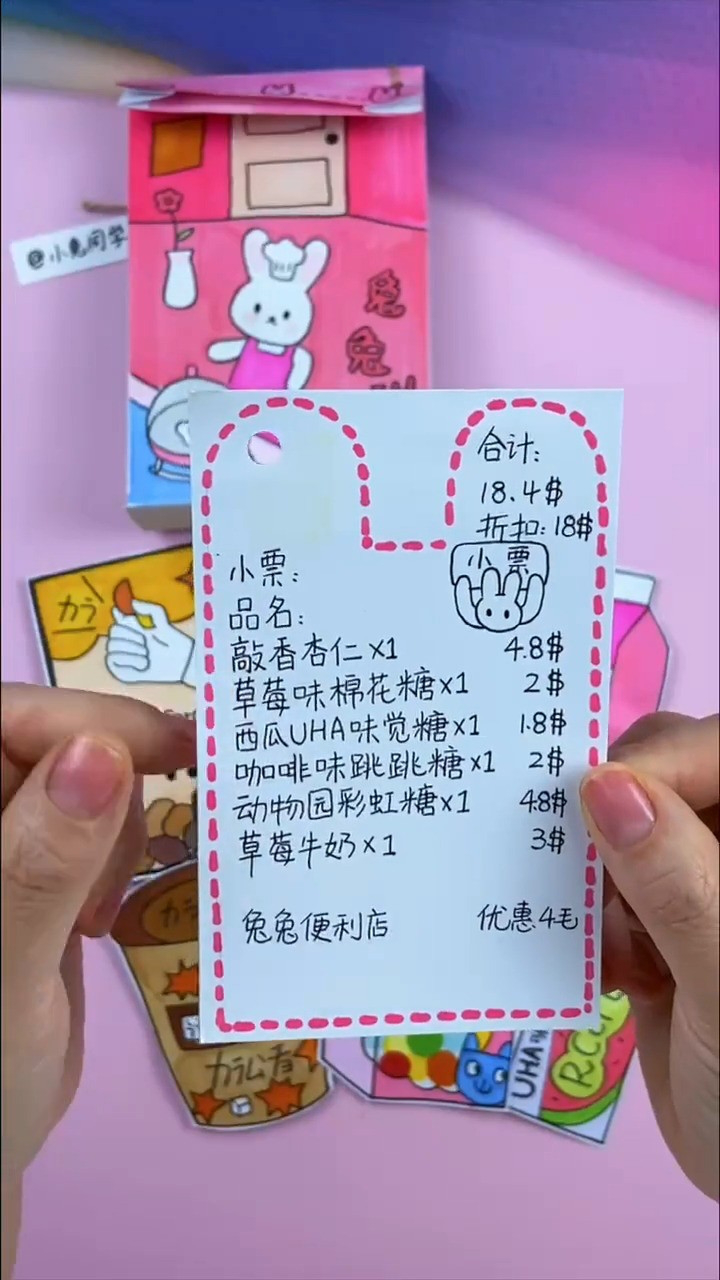 @小兔同学
兔
合计:
18.4$
折扣:18$
小票
小票:
品名:
敲香杏仁x1 4.8$
草莓味棉花糖x1 2$
西瓜UHA味觉糖x1 1.8$
咖啡味跳跳糖x1 2$
动物园彩虹糖x1 4.8$
草莓牛奶x1 3$
兔兔便利店 优惠4毛
カラ
カラムーチョ
UHA